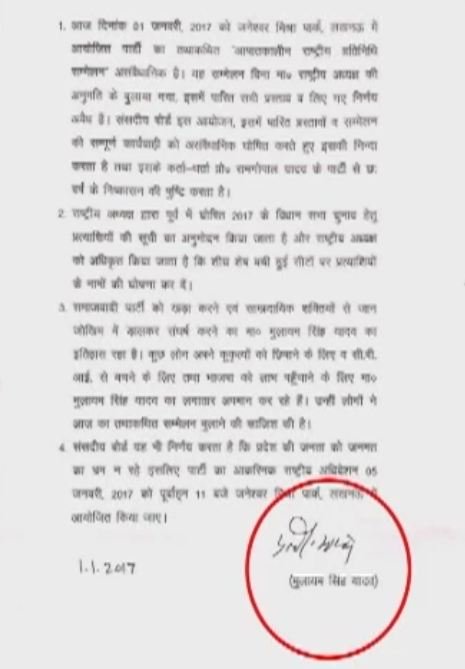 1. आज दिनांक 01 जनवरी, 2017 को जनेश्वर मिश्र पार्क, लखनऊ में
आयोजित पार्टी का तथाकथित "आपातकालीन राष्ट्रीय प्रतिनिधि
सम्मेलन" असंवैधानिक है। यह सम्मेलन बिना मा० राष्ट्रीय अध्यक्ष की
अनुमति के बुलाया गया, इसमें पारित सभी प्रस्ताव व लिए गए निर्णय
अवैध हैं। संसदीय बोर्ड इस आयोजन, इसमें पारित प्रस्तावों व सम्मेलन
की सम्पूर्ण कार्यवाही को असंवैधानिक घोषित करते हुए इसकी निन्दा
करता है तथा इसके कर्ता-धर्ता प्रो० रामगोपाल यादव के पार्टी से छः
वर्ष के निष्कासन की पुष्टि करता है।
2. राष्ट्रीय अध्यक्ष द्वारा पूर्व में घोषित 2017 के विधान सभा चुनाव हेतु
प्रत्याशियों की सूची का अनुमोदन किया जाता है और राष्ट्रीय अध्यक्ष
को अधिकृत किया जाता है कि शीघ्र शेष बची हुई सीटों पर प्रत्याशियों
के नामों की घोषणा कर दें।
3. समाजवादी पार्टी को खड़ा करने एवं साम्प्रदायिक शक्तियों से जान
जोखिम में डालकर संघर्ष करने का मा० मुलायम सिंह यादव का
इतिहास रहा है। कुछ लोग अपने कुकृत्यों को छिपाने के लिए व सी.बी.
आई. से बचने के लिए तथा भाजपा को लाभ पहुँचाने के लिए मा०
मुलायम सिंह यादव का लगातार अपमान कर रहे हैं। उन्हीं लोगों ने
आज का तथाकथित सम्मेलन बुलाने की साजिश की है।
4. संसदीय बोर्ड यह भी निर्णय करता है कि प्रदेश की जनता को जनमत
का भ्रम न रहे इसलिए पार्टी का आकस्मिक राष्ट्रीय अधिवेशन 05
जनवरी, 2017 को पूर्वाह्न 11 बजे जनेश्वर मिश्र पार्क, लखनऊ में
आयोजित किया जाए।
1.1.2017
(मुलायम सिंह यादव)